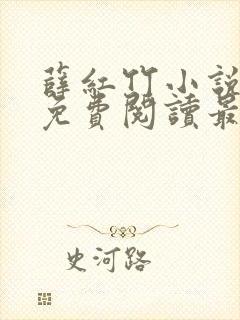 薛紅竹小說
免費閱讀最
史河路